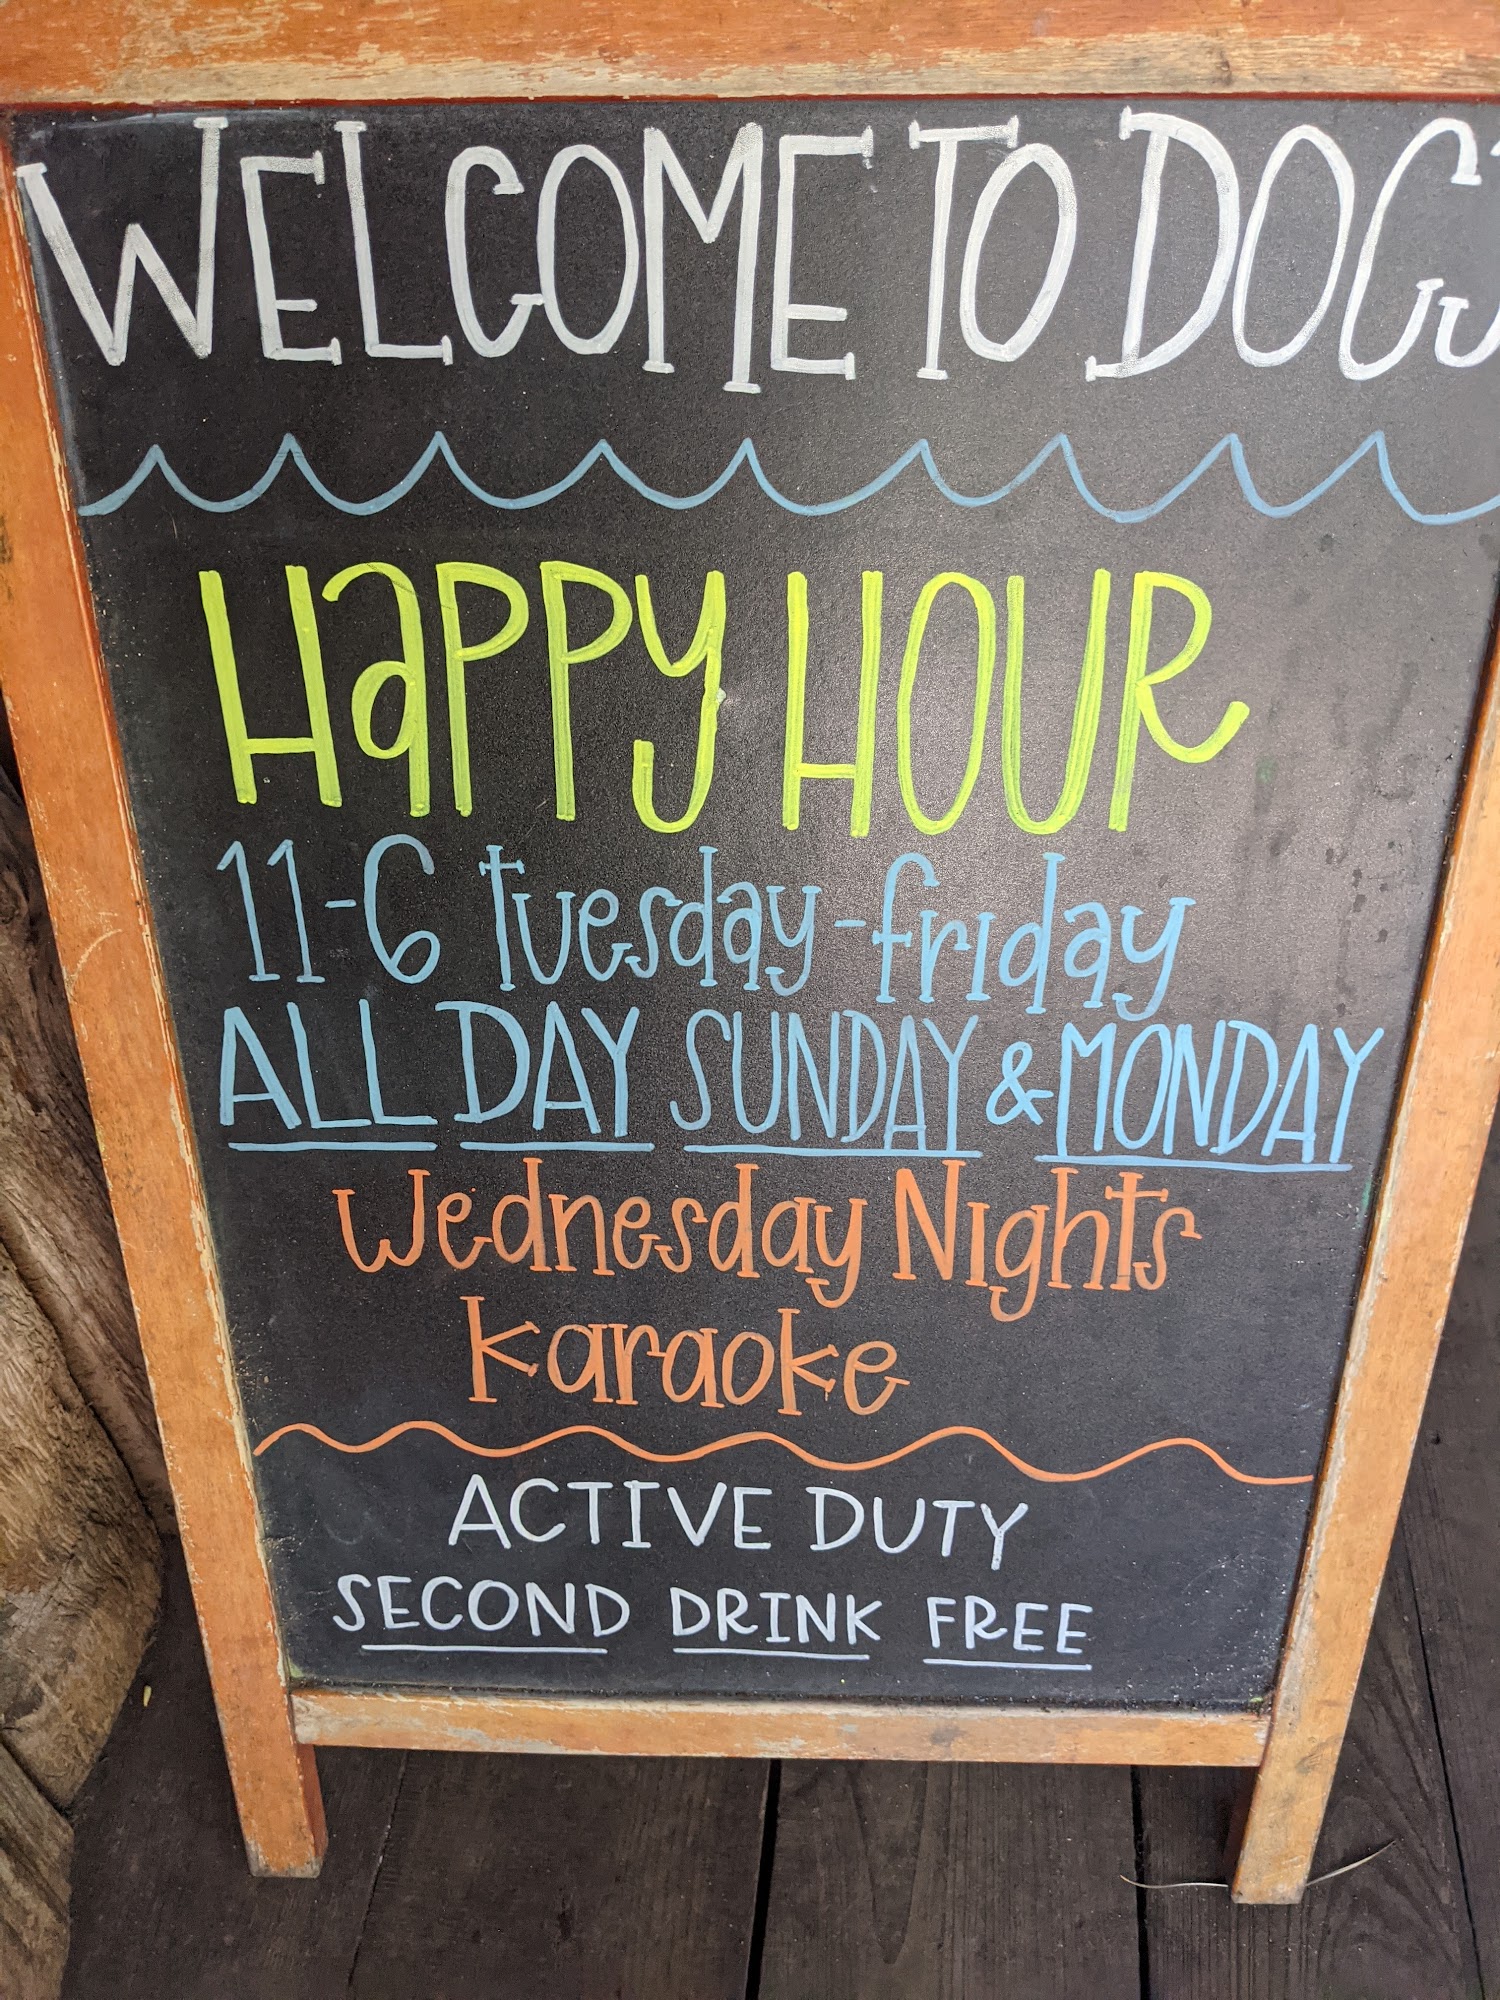 WELCOME TO DOC'S
HaPPy HOUR
11-6 tuesday-friday
ALL DAY SUNDAY & MONDAY
Wednesday Nights
karaoke
ACTIVE DUTY
SECOND DRINK FREE